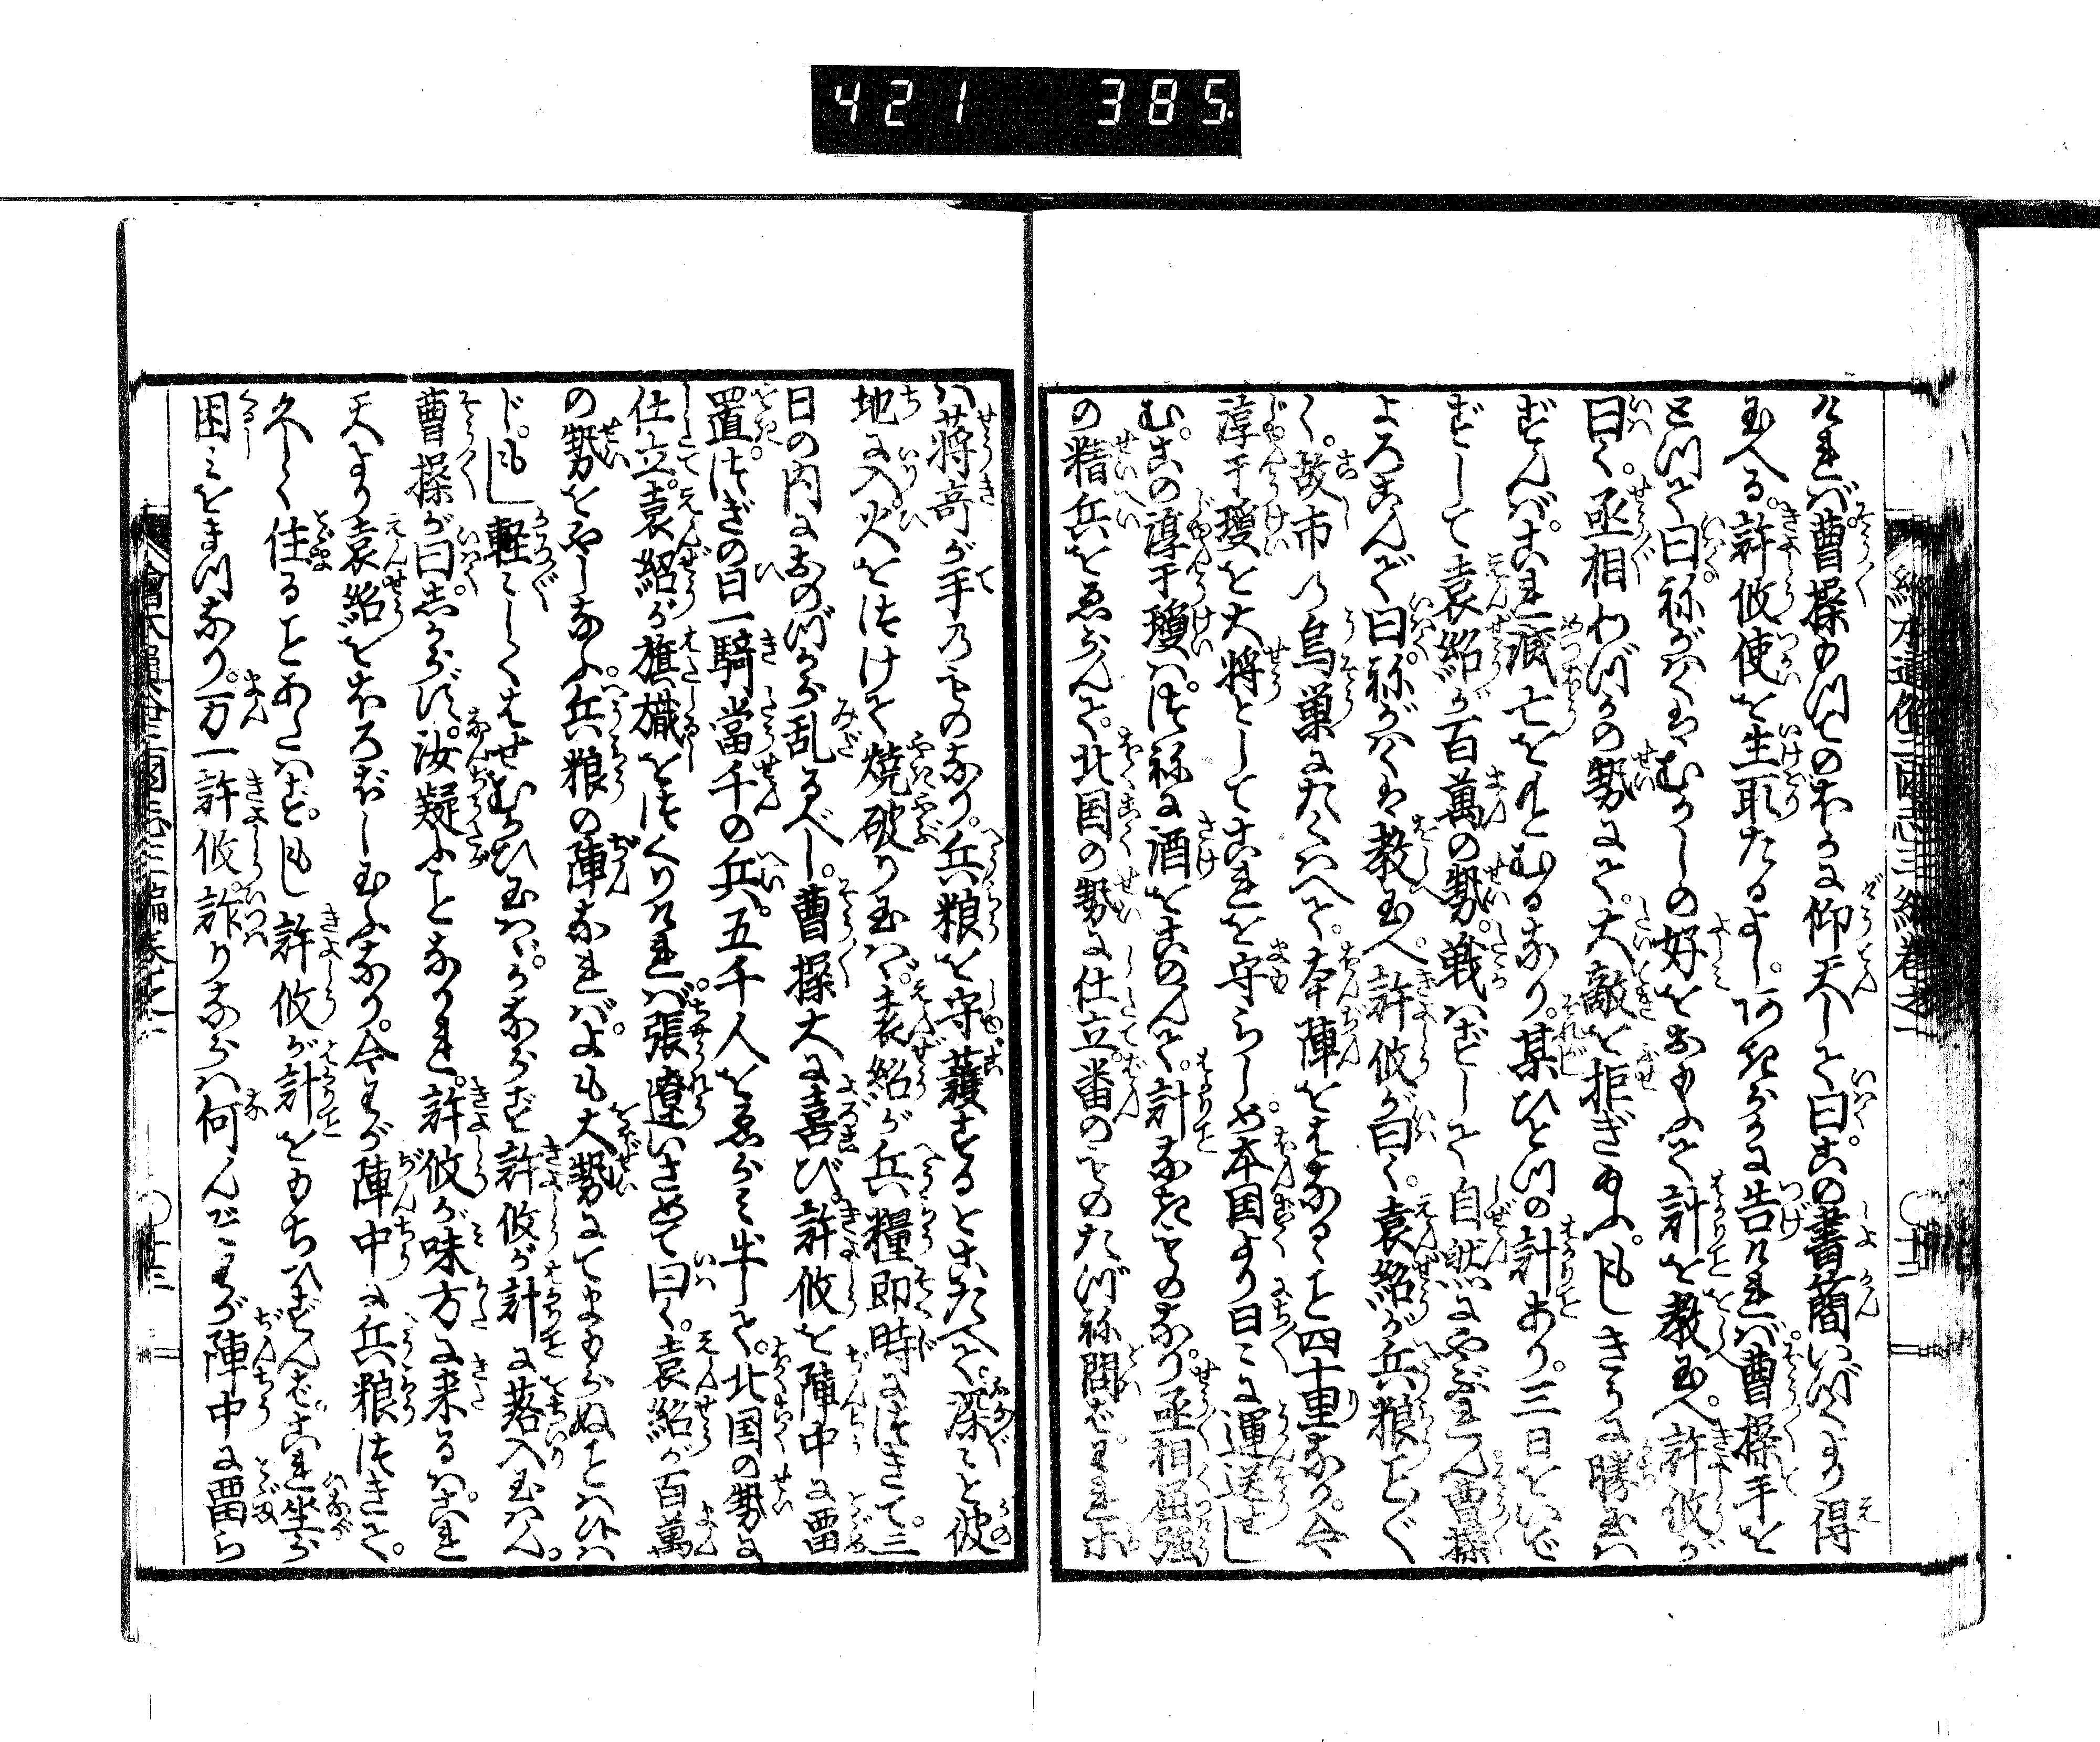 421 385
繪本通俗三國志三編卷之一
〇十二
けれバ曹操もつての外に仰天して曰この書簡いづくより得
玉へる許攸使を生取たるよしつげけれバ曹操手を
とつて曰祢がハくハむかしの好をおもふて計を教玉へ許攸が
曰く丞相わづかの勢にて大敵を拒ぎ玉ふもしきうに勝玉ハ
ずんバこれ滅亡をもとむるなり某ひとつの計あり三日をいで
ずして袁紹が百萬の勢戦ハずして自然にやぶれん曹操
よろこんで曰祢がハくハ教玉へ許攸が曰く袁紹が兵粮ことごと
く故市の烏巣にたくハへて本陣をはなるゝこと四十里なり今
淳于瓊を大将としてこれを守らしめ本国より日々に運送せし
むこの淳于瓊ハつねに酒をこのんで計なきものなり丞相屈強
の精兵をゑらんで北国の勢に仕立番のものたづね問ばこれ
ハ蒋竒が手のものなり兵粮を守護するとこたへて深々と彼
地に入火をつけて焼破り玉はゞ袁紹が兵糧即時につきて三
日の内におのづから乱るべし曹操大に喜び許攸を陣中に畱
置つぎの日一騎當千の兵五千人をゑらミ出して北国の勢に
仕立袁紹が旗幟をつくりけれバ張遼いさめて曰く袁紹が百萬
の勢をやしなふ兵粮の陣なれバよも大勢にてまもらぬことハ候ハ
じもし軽々しくはせむかひ玉はゞかならず許攸が計に落入玉はん
曹操が曰しからず汝疑ふことなかれ許攸が味方に来るハこれ
天より袁紹をほろぼし玉ふなり今わが陣中に兵粮つきて
久しく住ることあたハずもし許攸が計をもちひずんばこれ坐ら
困ミをまつなり万一許攸詐りならバ何んぞわが陣中に畱ら
繪本通俗三國志三編卷之一
〇十三